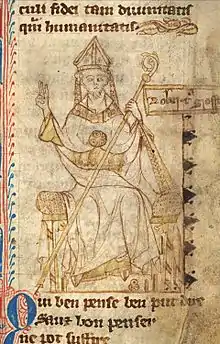 culi fidei tam diuinitatis
qui humanitatis.
Robert g
Qui ben pense ben put dire
Sanz bon penser
ne pot suffire